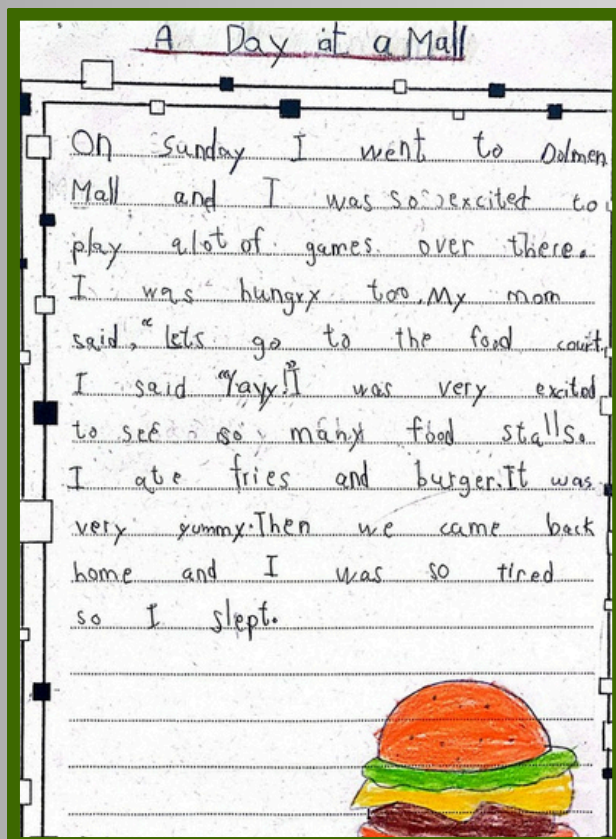 A Day at a Mall
On Sunday I went to Dolmen
Mall and I was so excited to
play alot of games over there.
I was hungry too, My mom
said, "lets go to the food court,
I said "Yayy!" I was very excited
to see so many food stalls.
I ate fries and burger. It was
very yummy. Then we came back
home and I was so tired
so I slept.